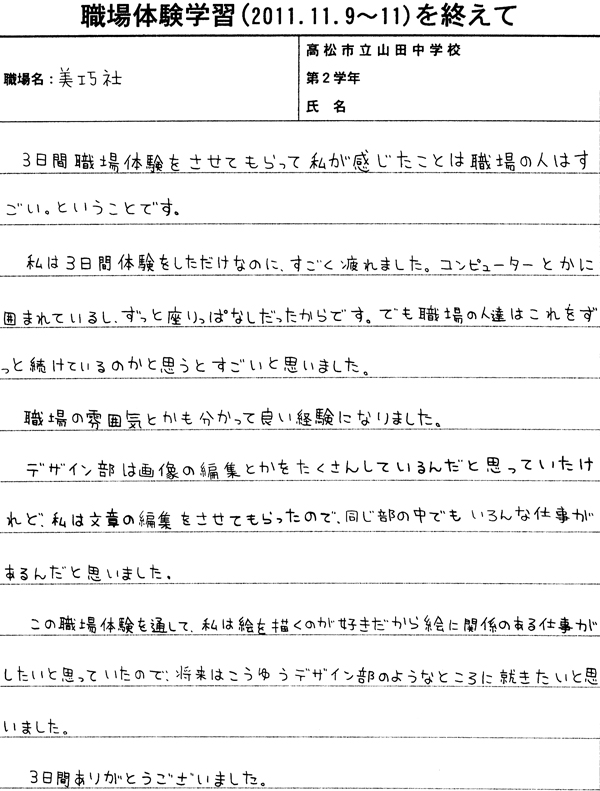 職場体験学習(2011.11.9～11)を終えて
職場名：美巧社
高松市立山田中学校
第2学年
氏 名
3日間職場体験をさせてもらって私が感じたことは職場の人はす
ごい。ということです。
私は3日間体験をしただけなのに、すごく疲れました。コンピューターとかに
囲まれているし、ずっと座りっぱなしだったからです。でも職場の人達はこれをず
っと続けているのかと思うとすごいと思いました。
職場の雰囲気とかも分かって良い経験になりました。
デザイン部は画像の編集とかをたくさんしているんだと思っていたけ
れど、私は文章の編集をさせてもらったので、同じ部の中でもいろんな仕事が
あるんだと思いました。
この職場体験を通して、私は絵を描くのが好きだから絵に関係のある仕事が
したいと思っていたので、将来はこうゆうデザイン部のようなところに就きたいと思
いました。
3日間ありがとうございました。